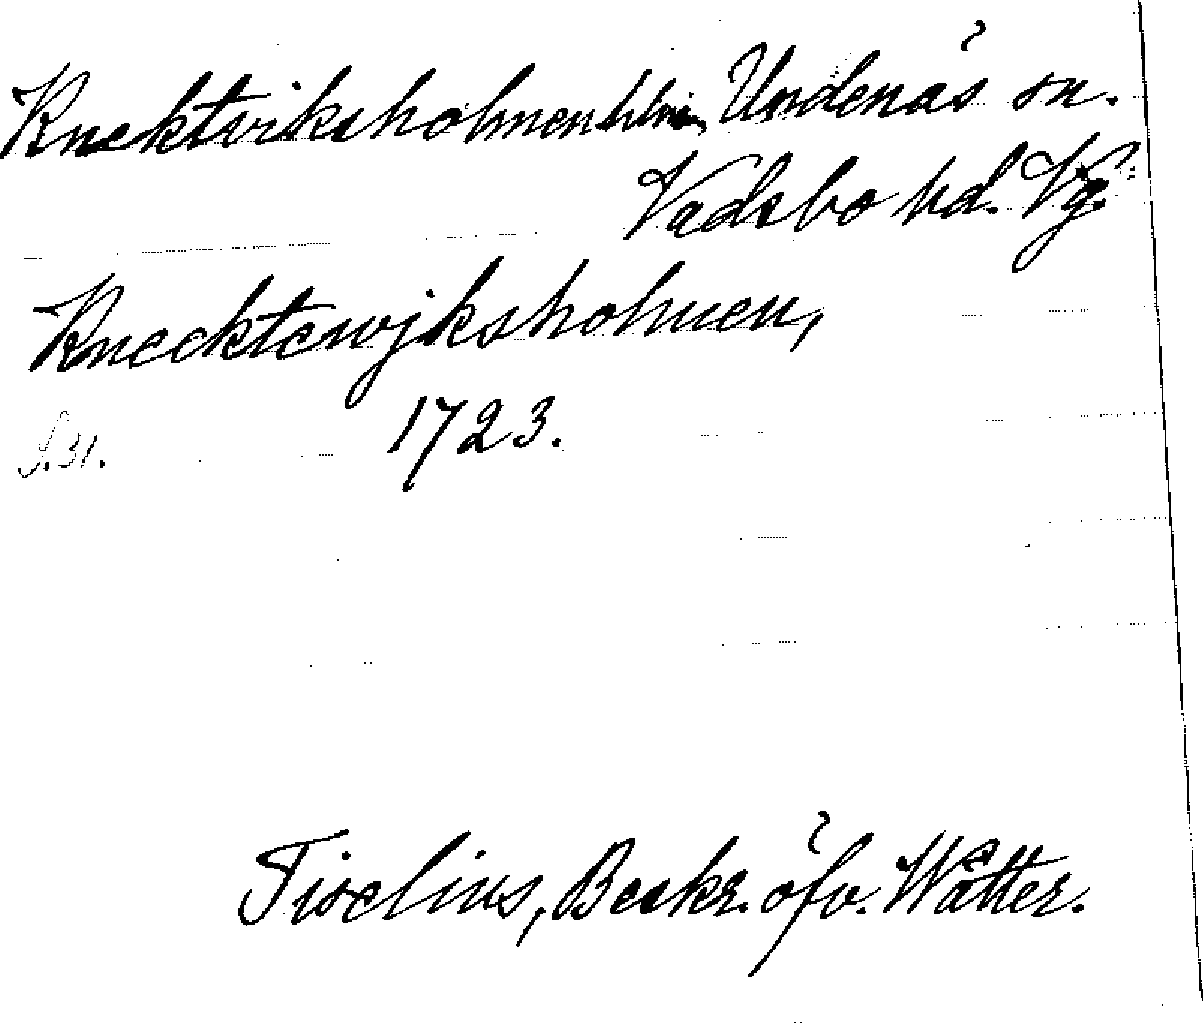 Knektviksholmen holme, Undenäs sn.
Vadsbo hd. Vg.
Knecktewjksholmen,
1723.
S. 31.
Tiselius, Beskr. öfv. Wätter.